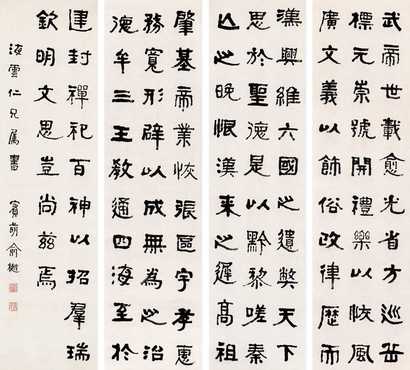 武帝世載愈光省方巡岳
標元崇號開禮樂以恢風
廣文義以飾俗政律歷而
漢興維六國之遺弊天下
思於聖德是以黔黎嗟秦
亾之晚恨漢來之遲高祖
肇基帝業恢張區宇孝惠
務寬形辟以成無為之治
德牟三王教通四海至於
建封禪祀百神以招羣瑞
欽明文思豈尚茲焉
海雲仁兄屬書 賓萌俞樾